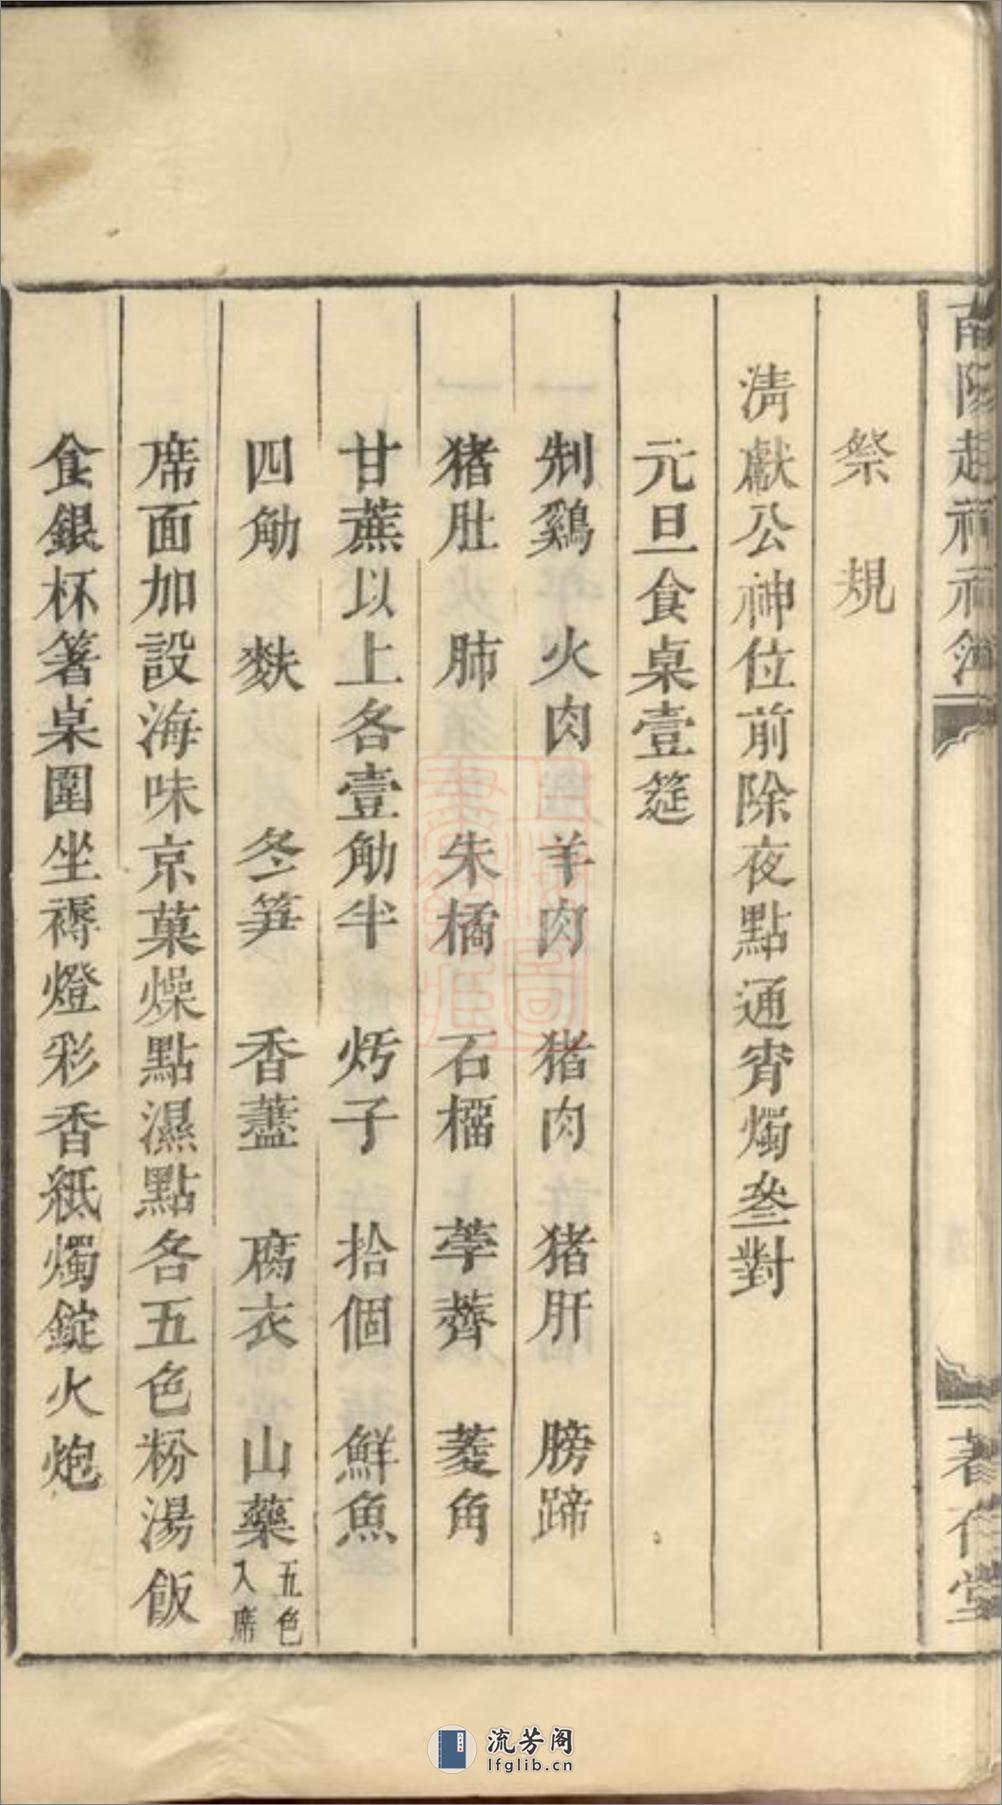 祭規
清獻公神位前除夜點通宵燭叁對
元旦食桌壹筵
制鷄 火肉 羊肉 猪肉 猪肝 膀蹄
猪肚 肺 朱橘 石榴 荸薺 菱角
甘蔗以上各壹觔半 炙子 拾個 鮮魚
四觔 麩 冬笋 香蕈 腐衣 山藥五色入席
席面加設海味京菓燥點濕點各五色粉湯飯
食銀杯箸桌圍坐褥燈彩香紙燭錠火炮
流芳阁
lfglib.cn